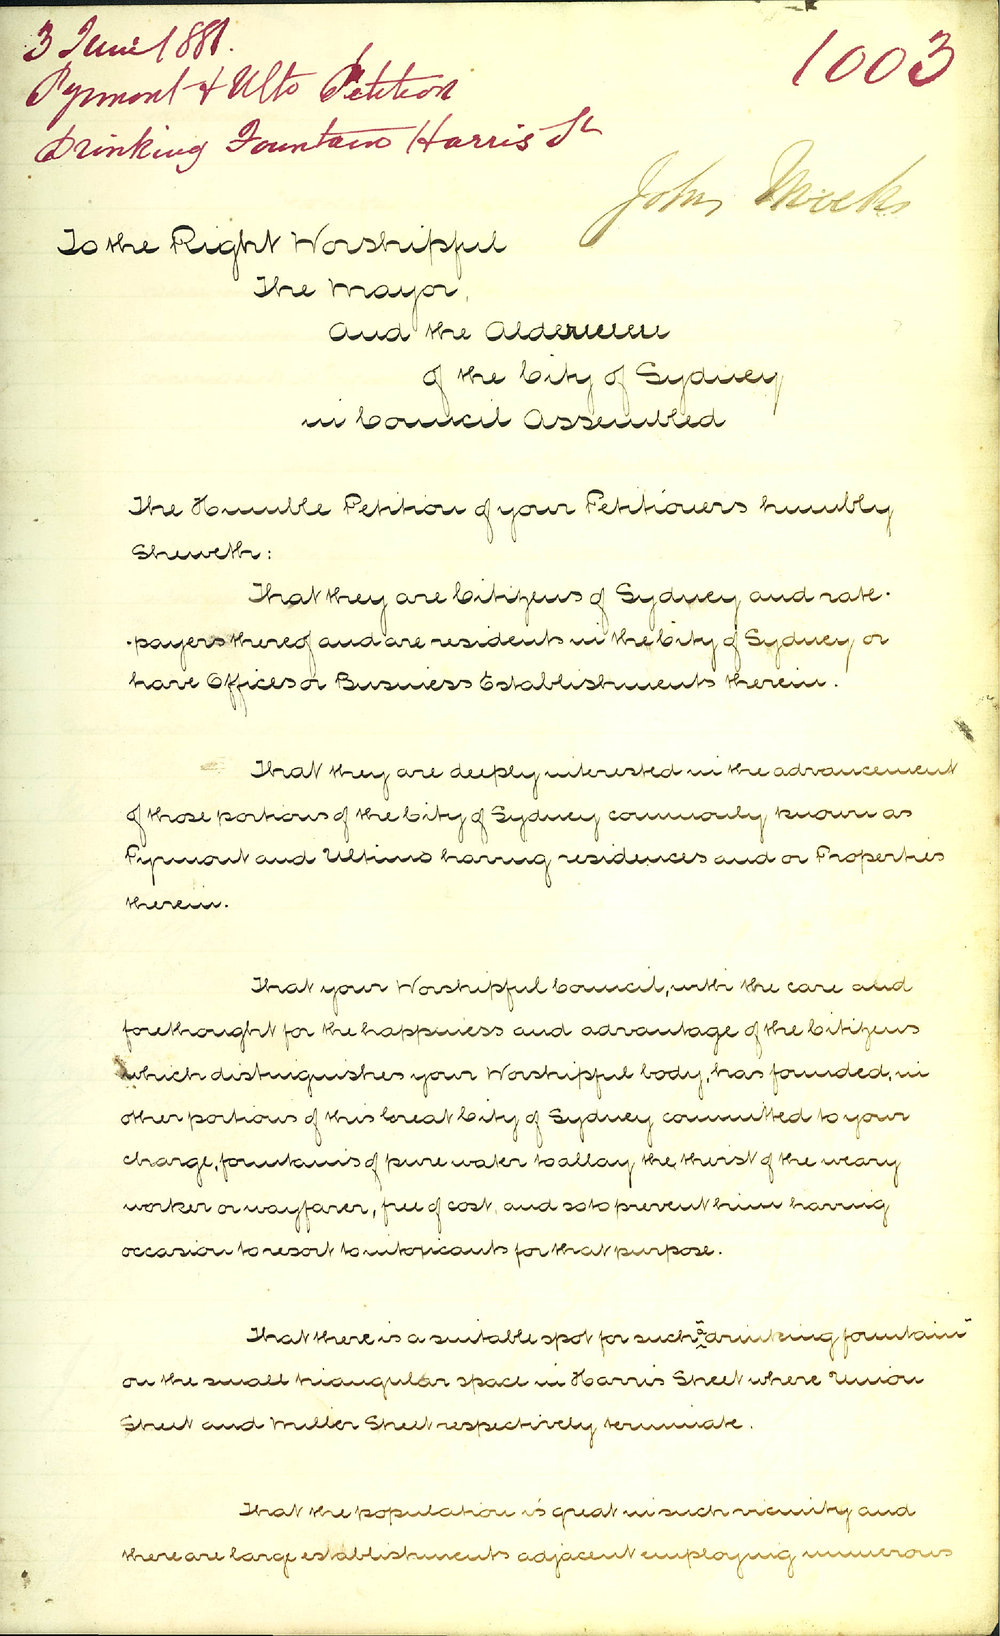 3 June 1881.
1003
Pyrmont & Ulto Petition
Drinking Fountain Harris St
John Meeks
To the Right Worshipful
The Mayor,
And the Aldermen
of the City of Sydney
in Council Assembled
The Humble Petition of your Petitioners humbly
Sheweth:
That they are Citizens of Sydney and rate-
-payers thereof and are residents in the City of Sydney or
have Offices or Business Establishments therein.
That they are deeply interested in the advancement
of those portions of the City of Sydney commonly known as
Pyrmont and Ultimo having residences and or Properties
therein.
That your Worshipful Council, with the care and
forethought for the happiness and advantage of the Citizens
which distinguishes your Worshipful body, has founded, in
other portions of this Great City of Sydney committed to your
charge, fountains of pure water to allay the thirst of the weary
worker or wayfarer, free of cost, and so to prevent him having
occasion to resort to intoxicants for that purpose.
That there is a suitable spot for such a "drinking fountain"
on the small triangular space in Harris Street where Union
Street and Miller Street respectively terminate.
That the population is great in such vicinity and
there are large establishments adjacent employing numerous